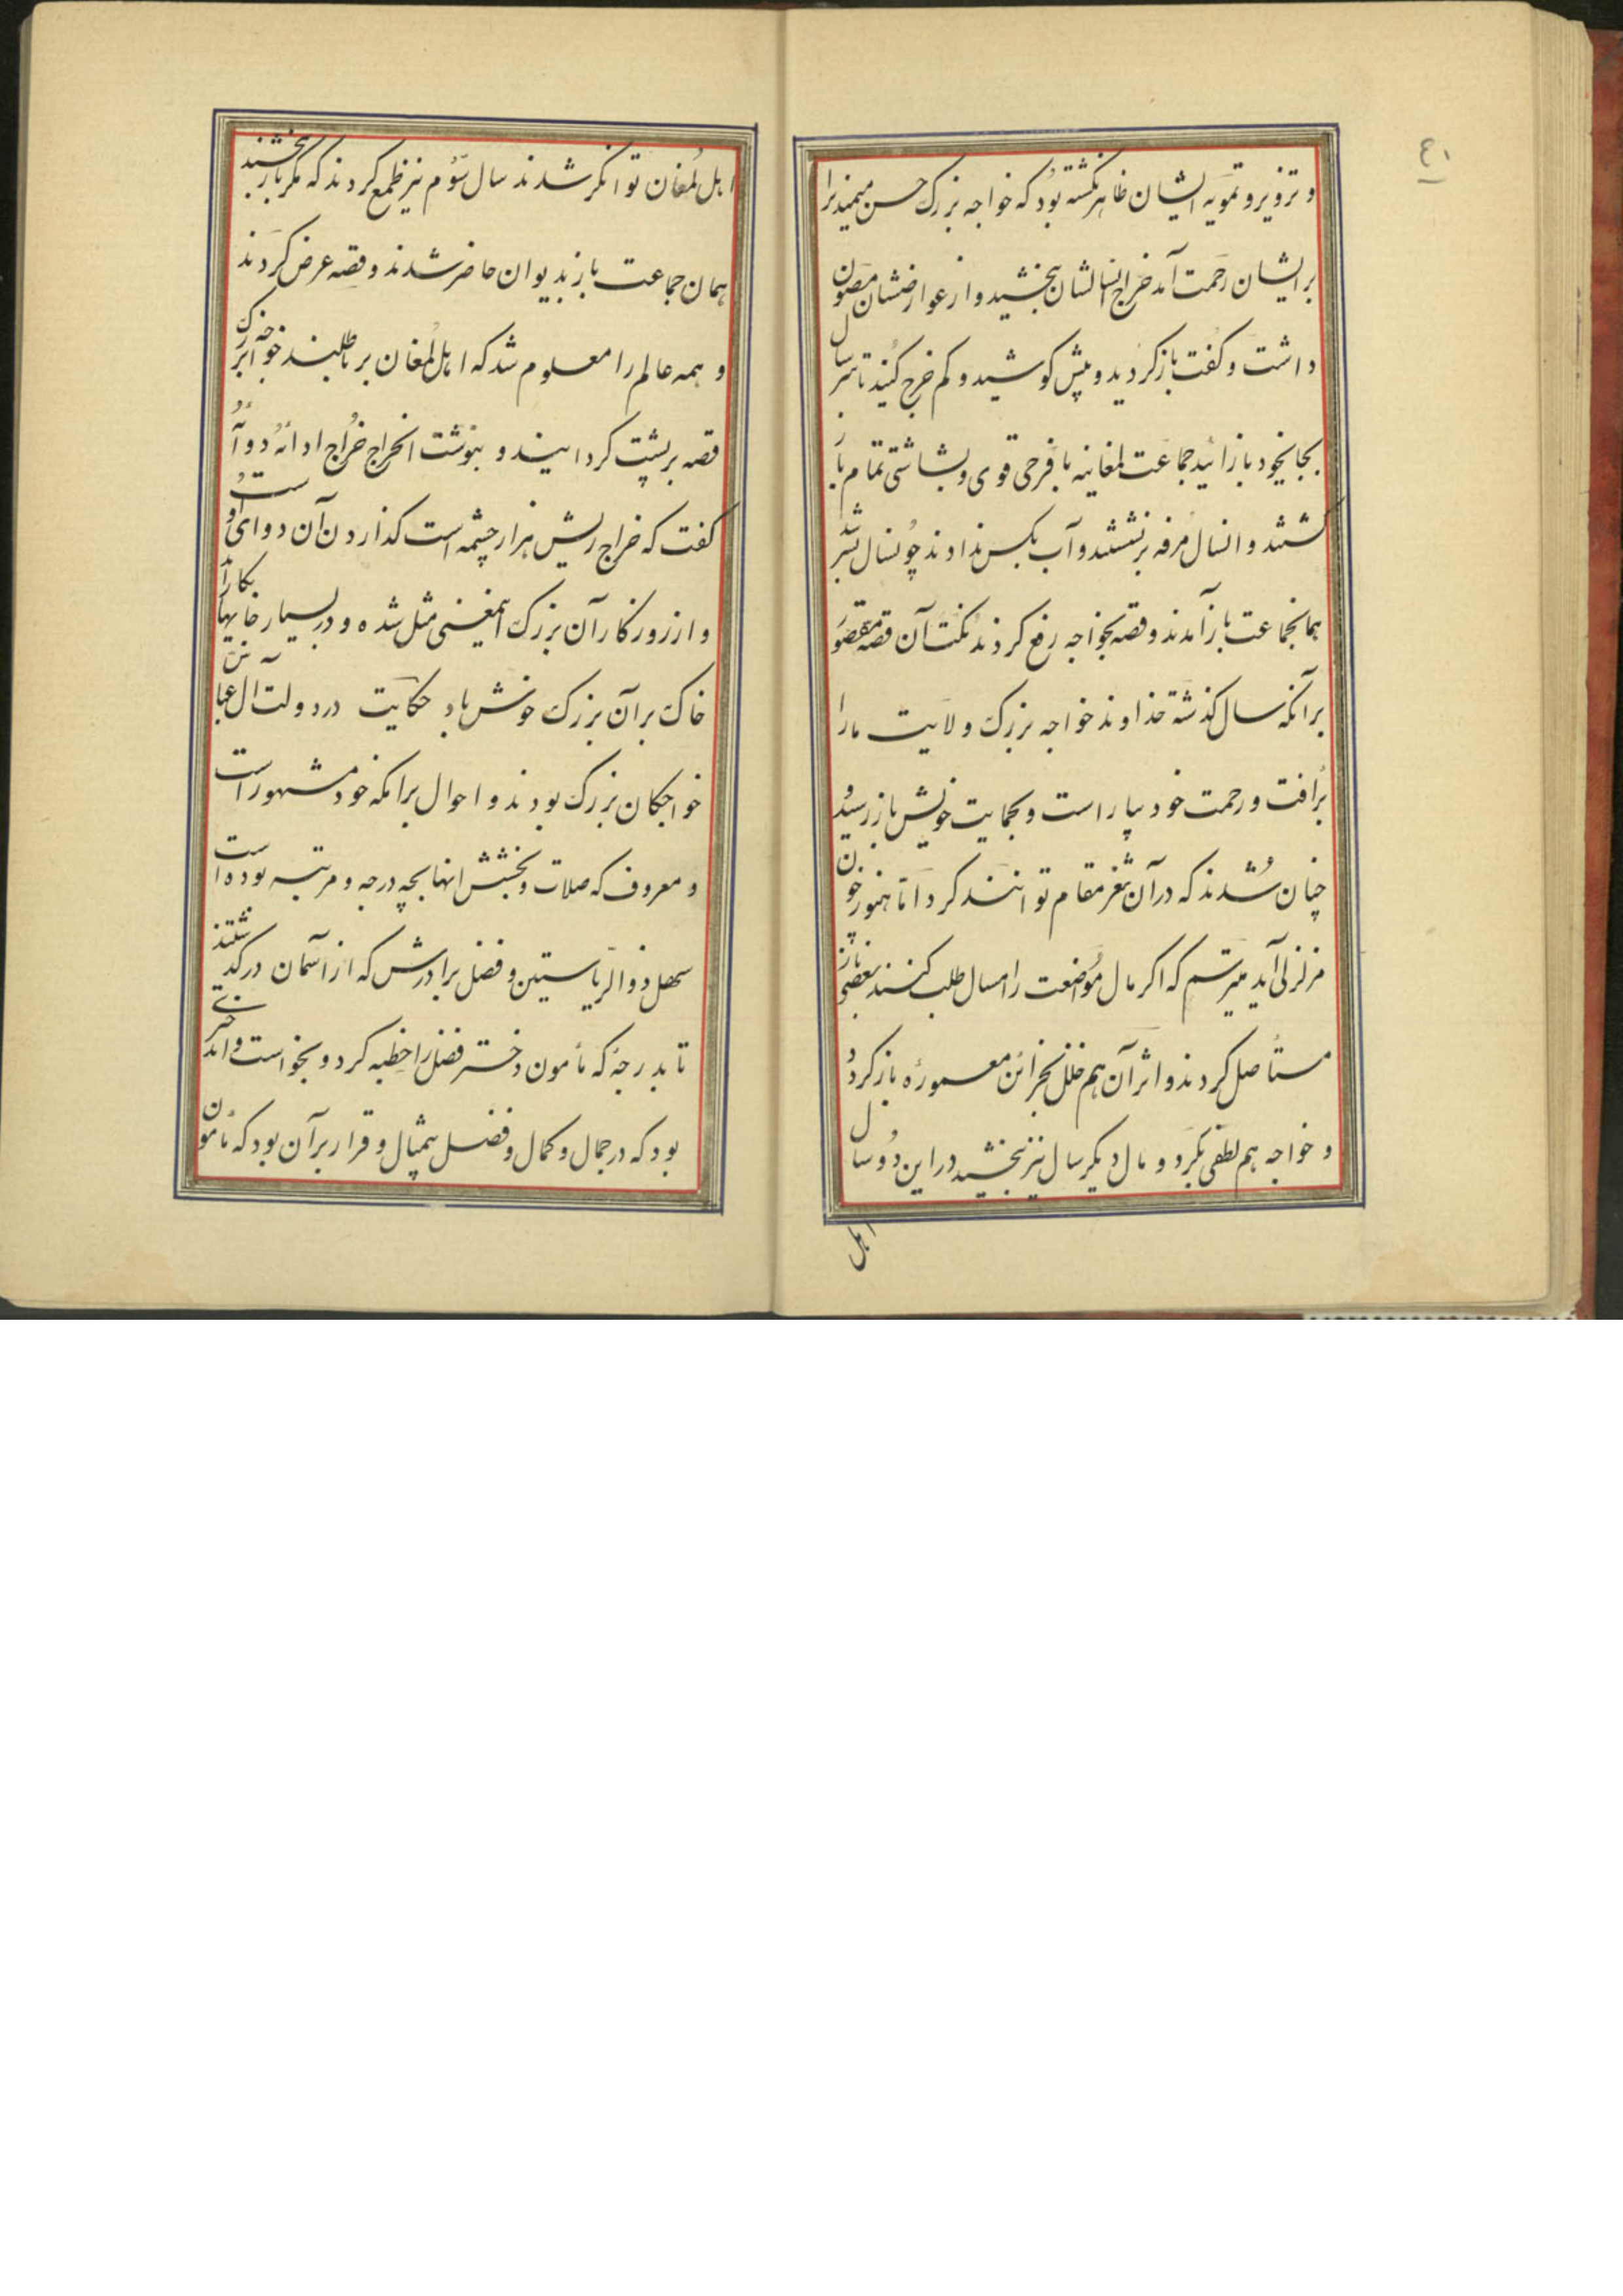 ۴۱
و تزویر و تمویه ایشان ظاهر نکشته بود که خواجه بزرک حسن میمندیرا
بر ایشان رحمت آمد خراج انسالشان ببخشید و از عوارضشان مصون
داشت و کفت باز کردید و بیش کوشید و کم خرج کنید تا سر سال
بجایخود باز ائید جماعت لمغانیه با فرحی قوی و بشاشتی تمام باز
کشتند و انسال مرفه بنشستند و آب بکس ندادند چو نسال بسر شد
همانجماعت باز آمدند و قصه بخواجه رفع کردند نکت آن قصه مقصور
بر آنکه سال کذشته خداوند خواجه بزرک ولایت ما را
برافت و رحمت خود بیاراست و بحمایت خویش باز رسید و
چنان شدند که در آن ثغر مقام توانند کرد اما هنوز چون
مزلزلی آید میترسم که اکر مال مواضعت را امسال طلب کنند بعضی باز
مستأصل کردند و اثر آن هم خلل بخزائن معموره باز کردد
و خواجه هم لطفی بکرد و مال دیکر سال نیز ببخشید در این دو سال
اهل
اهل لمغان توانکر شدند سال سوم نیز طمع کردند که مکر باز بخشند
همان جماعت باز بدیوان حاضر شدند و قصه عرض کردند
و همه عالم را معلوم شد که اهل لمغان بر باطلند خواجه بزرک
قصه بر پشت کردانیند و بنوشت الخراج خراج اداؤه دوآؤه
کفت که خراج ریش هزار چشمه است کذاردن آن دوای او است
و از روزکار آن بزرک اینمعنی مثل شده و در بسیار جایها بکار آید
خاک بر آن بزرک خوش باد حکایت در دولت ال عباس
خواجکان بزرک بودند و احوال برامکه خود مشهور است
و معروف که صلات و بخشش انها بچه درجه و مرتبه بوده است
سهل ذو الریاستین و فضل برادرش که از آسمان در کذشتند
تا بدرجه که مأمون دختر فضل را خطبه کرد و بخواست و ان دختری
بود که در جمال و کمال و فضل بیمثال و قرار بر آن بود که مأمون